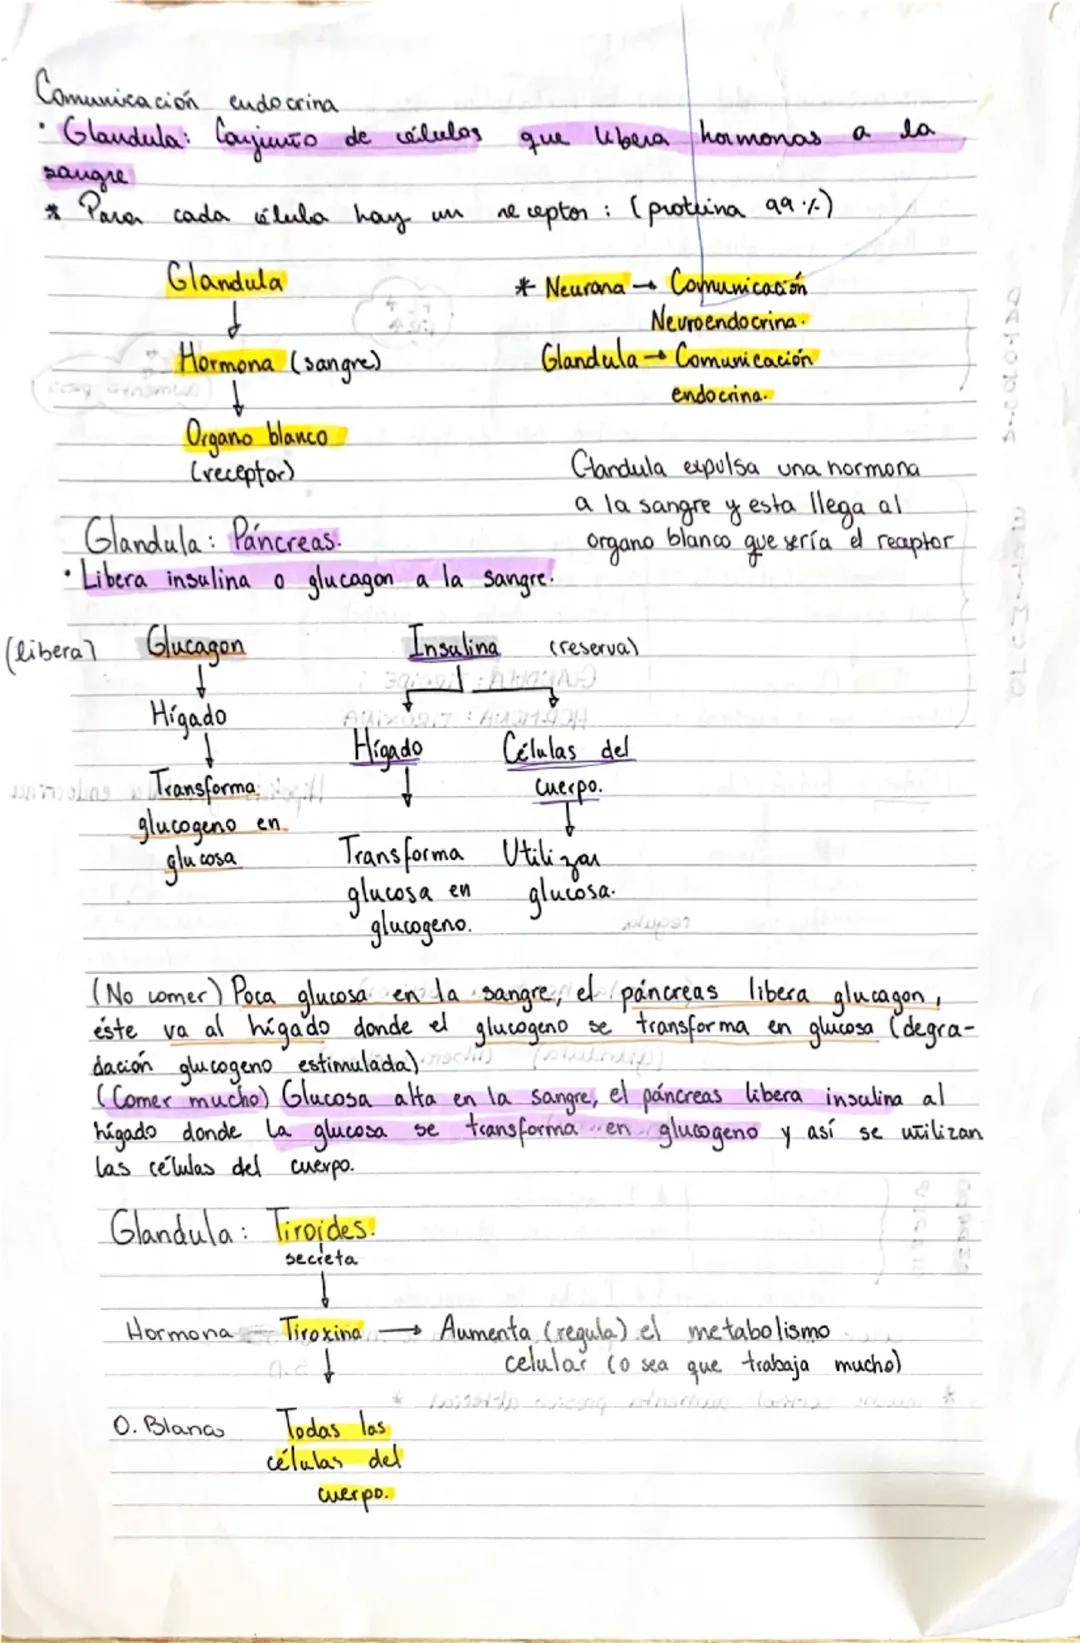 Comunicación endocrina
· Glandula: Conjunto de células que libera hormonas a la
sangre
* Para cada célula hay un receptor: (proteina 99%)
Glandula
Hormona (sangre)
Organo blanco
(receptor)
* Neurona → Comunicación
Neuroendocrina.
Glandula → Comunicación
endocrina.
Glandula expulsa una hormona
a la sangre y esta llega al
organo blanco que sería el receptor
Glandula: Páncreas.
· Libera insulina o glucagon a la sangre.
(libera) Glucagon
Hígado
Transforma
glucogeno en
glucosa
Insulina (reserva)
Hígado
Transforma
glucosa en
glucogeno.
Células del
cuerpo.
Utilizar
glucosa.
(No comer) Poca glucosa en la sangre, el páncreas libera glucagon,
éste va al hígado donde el glucogeno se transforma en glucosa (degra-
dación glucogeno estimulada)
(Comer mucho) Glucosa alta en la sangre, el páncreas libera insulina al
hígado donde la glucosa se transforma en glucogeno y así se utilizan
las células del cuerpo.
Glandula: Tiroides.
secreta
Hormona Tiroxina → Aumenta (regula) el metabolismo
celular (o sea que trabaja mucho)
O. Blanco Todas las
células del
cuerpo.